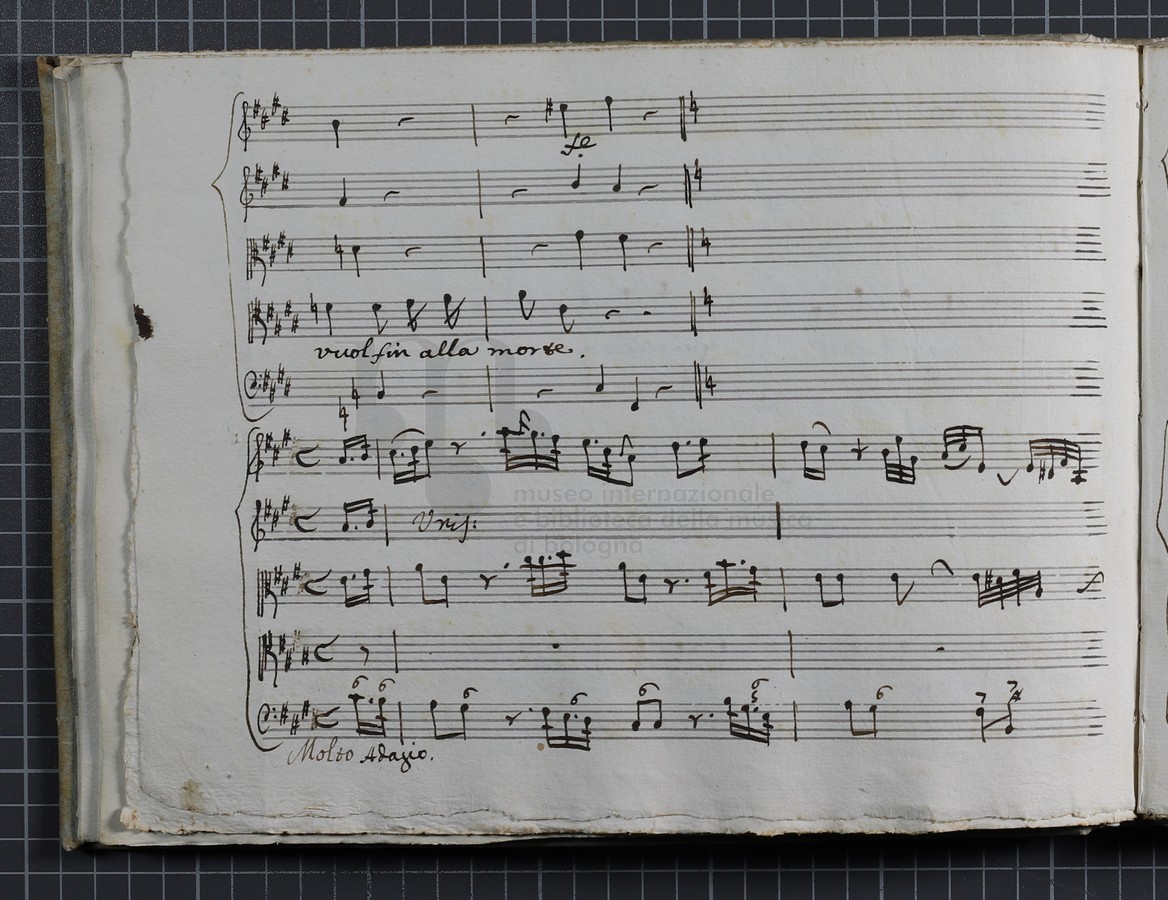 fe
vuol fin alla morte.
museo internazionale
e biblioteca della musica
di bologna
Unis:
6 6 6 6 6 6 6 7 7
Molto Adagio.